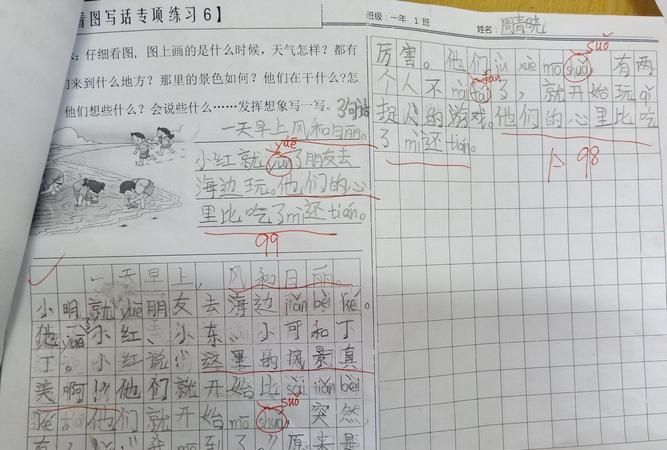 看图写话专项练习6】
：仔细看图，图上画的是什么时候，天气怎样？都有
们来到什么地方？那里的景色如何？他们在干什么？怎
他们想些什么？会说些什么……发挥想象写一写。3句话
一天早上，风和日丽。
yuē
小红就yun了朋友去
海边玩。他们的心
里比吃了mì还tián。
99
一天早上，风和日丽。
小明就yuē朋友去海边jiǎn bèi ké。
他yuē了小红、小东、小可和丁
丁。小红说：“这里的风景真
美啊！”他们就开始比sài jiǎn bèi
ké 他们就开始mō shuō，突然，
suō
有
班级：一年 1 班
姓名：周青晓
suō
厉害。他们jì xue mō shuō，有两
fǎn
个人不mì fǎi了，就开始玩qǐ
捉人的游戏。他们的心里比吃
了mì还tián。
98